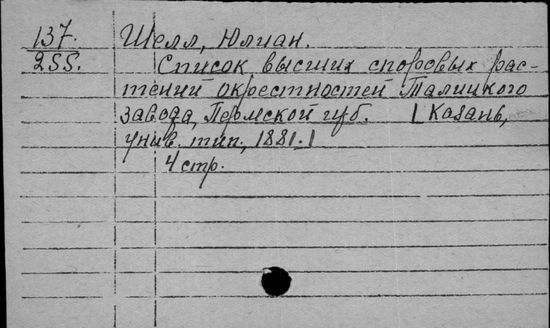 137. Шелл, Юлиан.
255. Список высших споровых рас-
тений окрестностей Талицкого
завода, Пермской губ. [Казань,
унив. тип., 1881.]
4 стр.